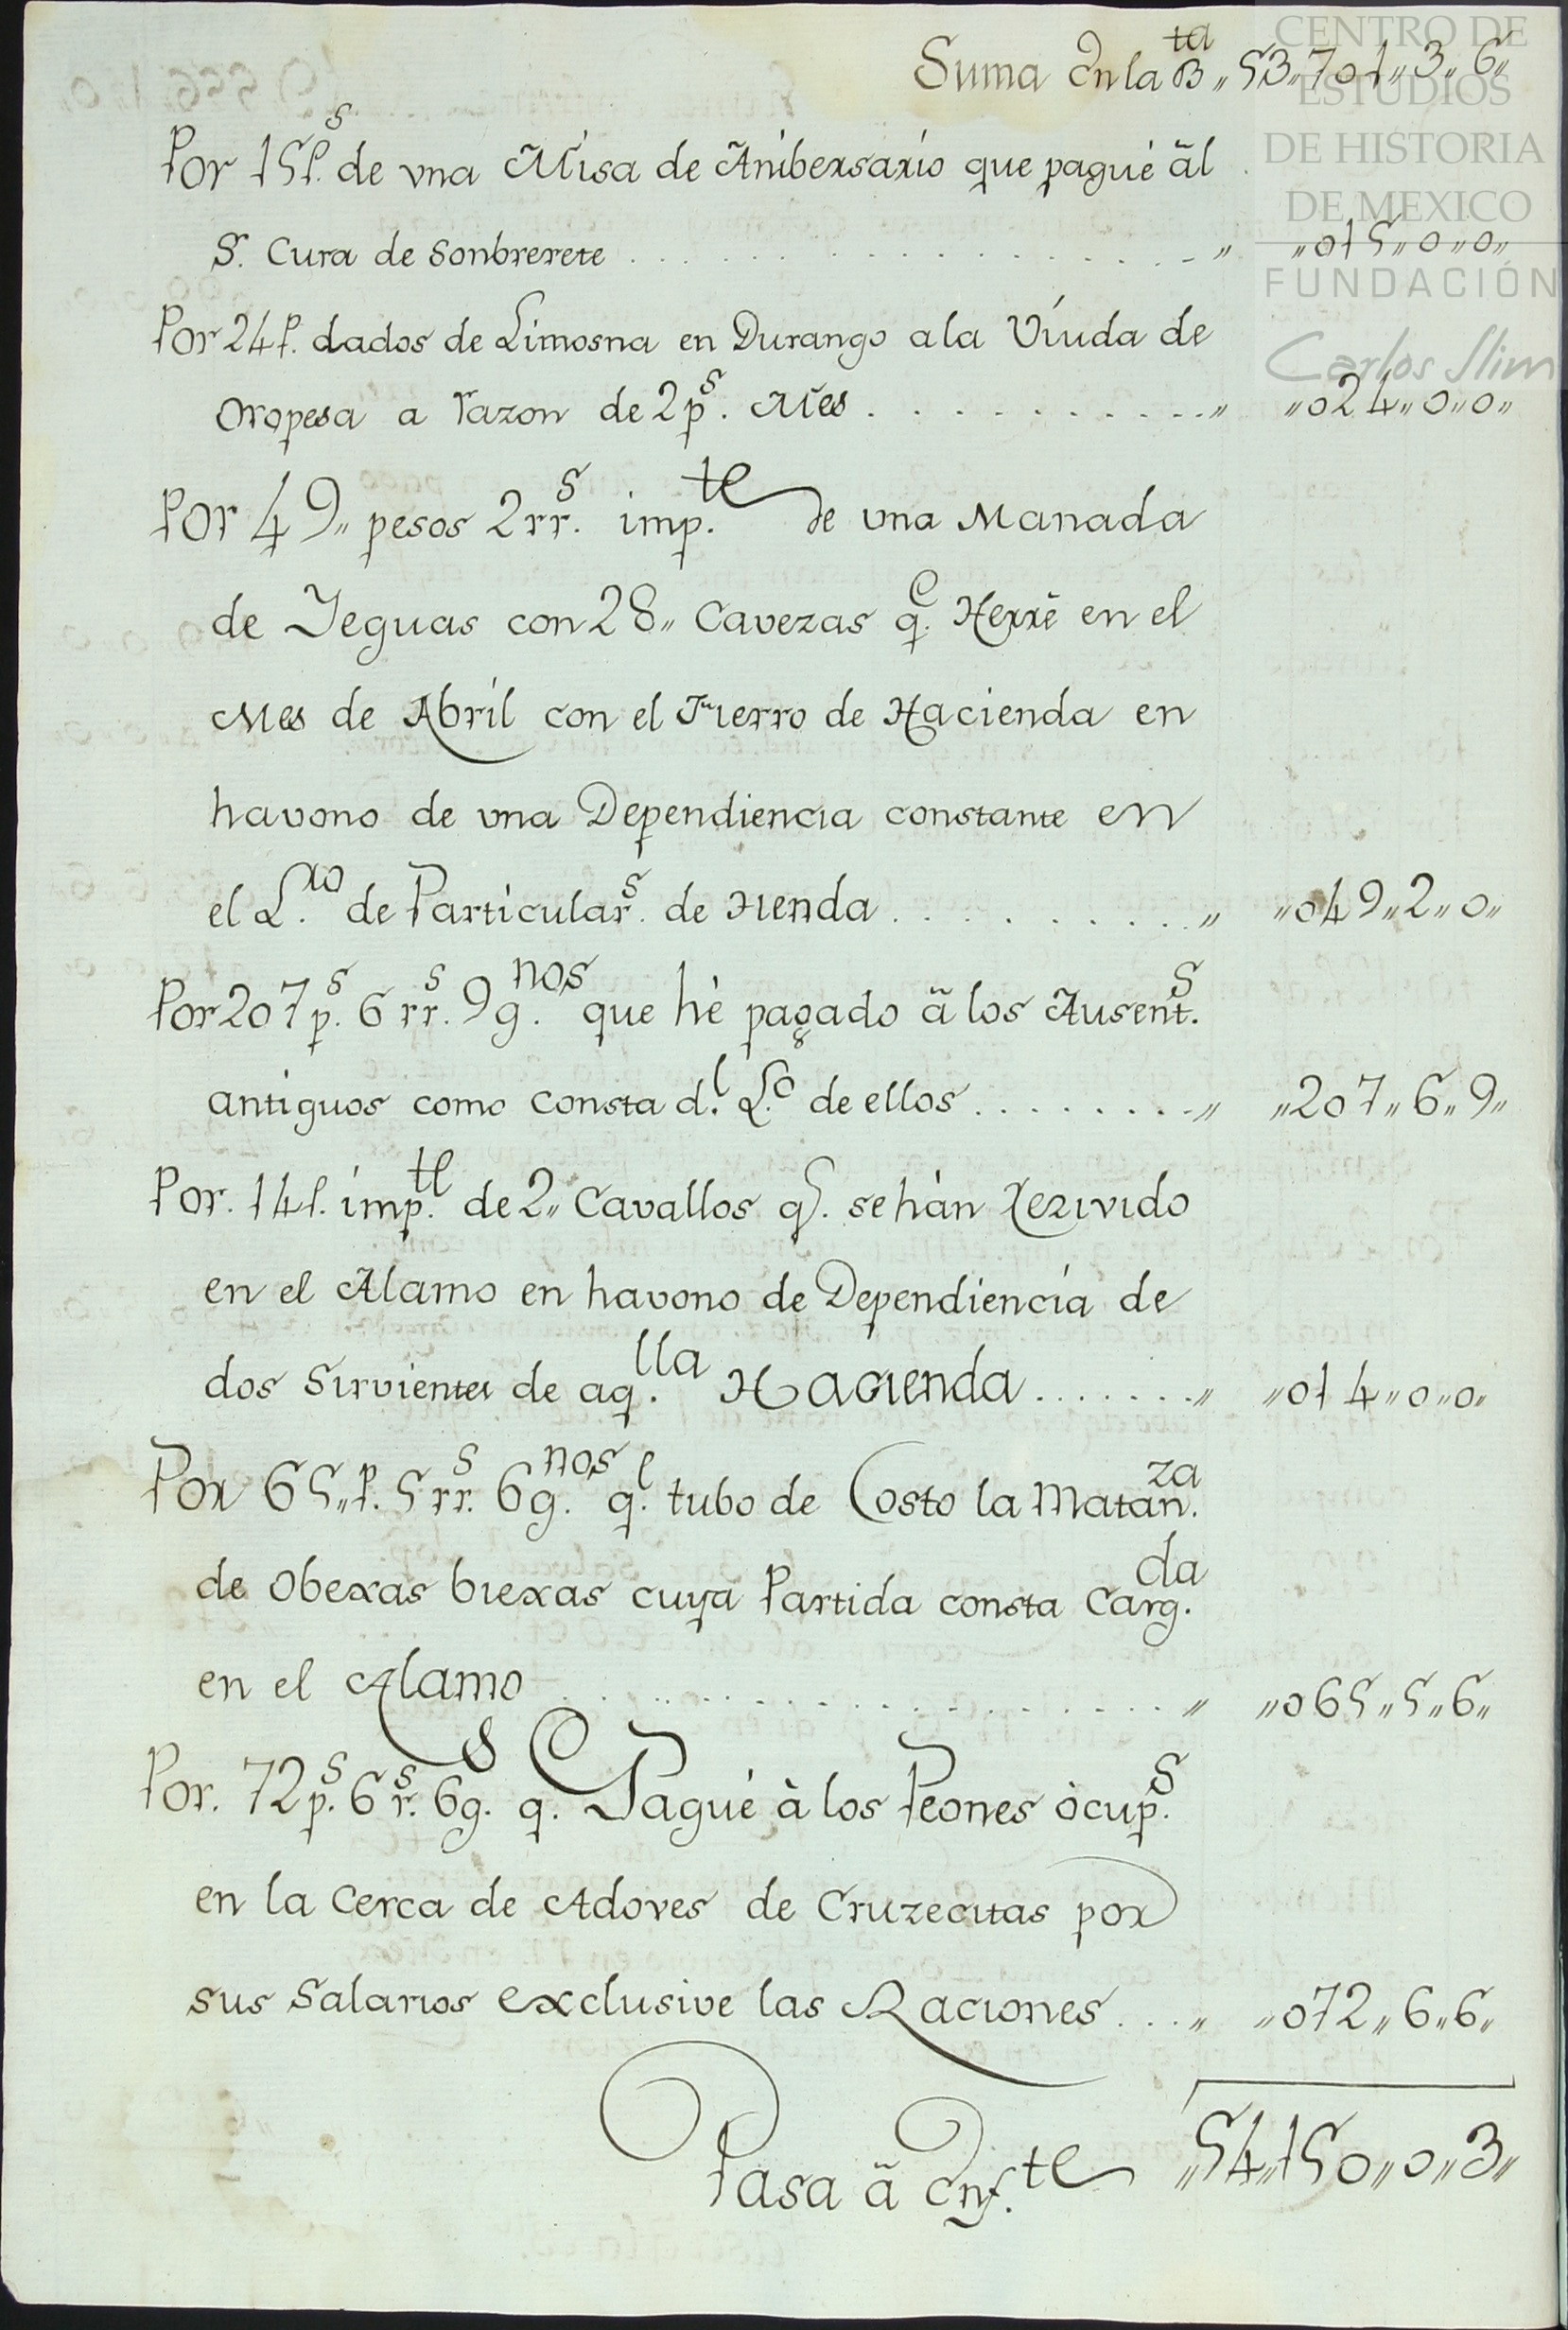 Suma Enla B.ta „53„701„3„6„
CENTRO DE
ESTUDIOS
DE HISTORIA
DE MEXICO
FUNDACIÓN
Carlos Slim
Por 15p.s de vna Misa de Anibersario que pagué ãl
S.r Cura de Sonbrerete . . . . . . . . . „ „015„0„0„
Por 24p. dados de Limosna en Durango a la Víuda de
Oropesa a razon de 2p.s Mês . . . . . . . . . „ „024„0„0„
Por 49„ pesos 2rr.s imp.te de vna Manada
de Yeguas con 28„ Cavezas q.e Herré en el
Mes de Abril con el Fierro de Hacienda en
havono de vna Dependiencia constante en
el L.xo de Particular.s de Hienda . . . . . . . . . „ „049„2„0„
Por 207p.s 6 rr.s 9g.nos que hé pagado ã los Ausent.s
antiguos como consta d.l L.o de ellos . . . . . . . . . „ „207„6„9„
Por. 14p. imp.te de 2„ Cavallos q.e se hán Rezivido
en el Alamo en havono de Dependiencía de
dos Sirvientes de aq.lla Hacienda . . . . . . . „ „014„0„0„
Por 65„p. 5rr.s 6g.nos q.e tubo de Costo la Matan.za
de Obexas biexas cuya Partida consta Carg.da
en el Alamo . . . . . . . . . „ „065„5„6„
Por. 72p.s 6r.s 6g.s q.e Pagué à los Peones òcup.s
en la Cerca de Adoves de Cruzecitas por
sus Salarios exclusive las Raciones . . . „ „072„6„6„
Pasa ã Enf.te „54„150„0„3„